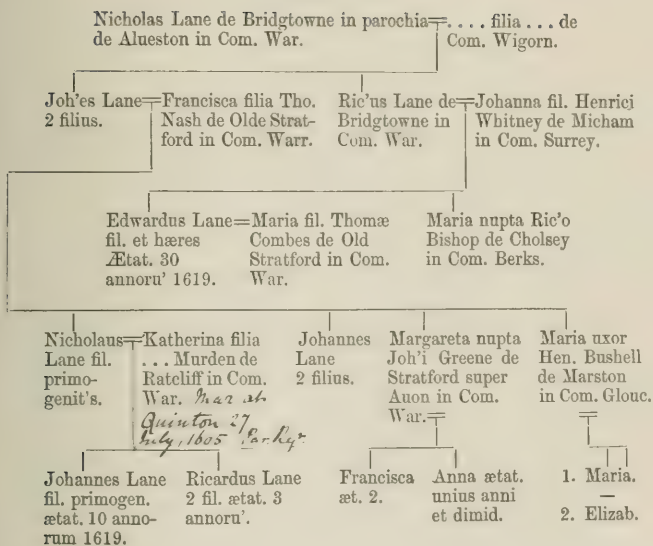 Nicholas Lane de Bridgtowne in parochia
de Alueston in Com. War.
. . . . filia . . . de
Com. Wigorn.
Joh'es Lane
2 filius.
Francisca filia Tho.
Nash de Olde Strat-
ford in Com. Warr.
Ric'us Lane de
Bridgtowne in
Com. War.
Johanna fil. Henrici
Whitney de Micham
in Com. Surrey.
Edwardus Lane
fil. et hæres
Ætat. 30
annoru' 1619.
Maria fil. Thomæ
Combes de Old
Stratford in Com.
War.
Maria nupta Ric'o
Bishop de Cholsey
in Com. Berks.
Nicholaus
Lane fil.
primo-
genit's.
Katherina filia
. . . Murden de
Ratcliff in Com.
War. Mar at
Quinton 27
July, 1605 Par. Rgr
Johannes
Lane
2 filius.
Margareta nupta
Joh'i Greene de
Stratford super
Auon in Com.
War.
Maria uxor
Hen. Bushell
de Marston
in Com. Glouc.
Johannes Lane
fil. primogen.
ætat. 10 anno-
rum 1619.
Ricardus Lane
2 fil. ætat. 3
annoru'.
Francisca
æt. 2.
Anna ætat.
unius anni
et dimid.
1. Maria.
—
2. Elizab.